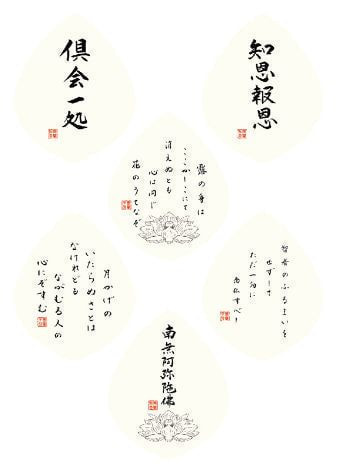 知恩報恩
倶会一処
露の身は
ここかしこにて
消えぬとも
心は同じ
花のうてなぞ
智者のふるまいを
せずして
ただ一向に
念仏すべし
月かげの
いたらぬさとは
なけれども
ながむる人の
心にぞすむ
南無阿弥陀佛